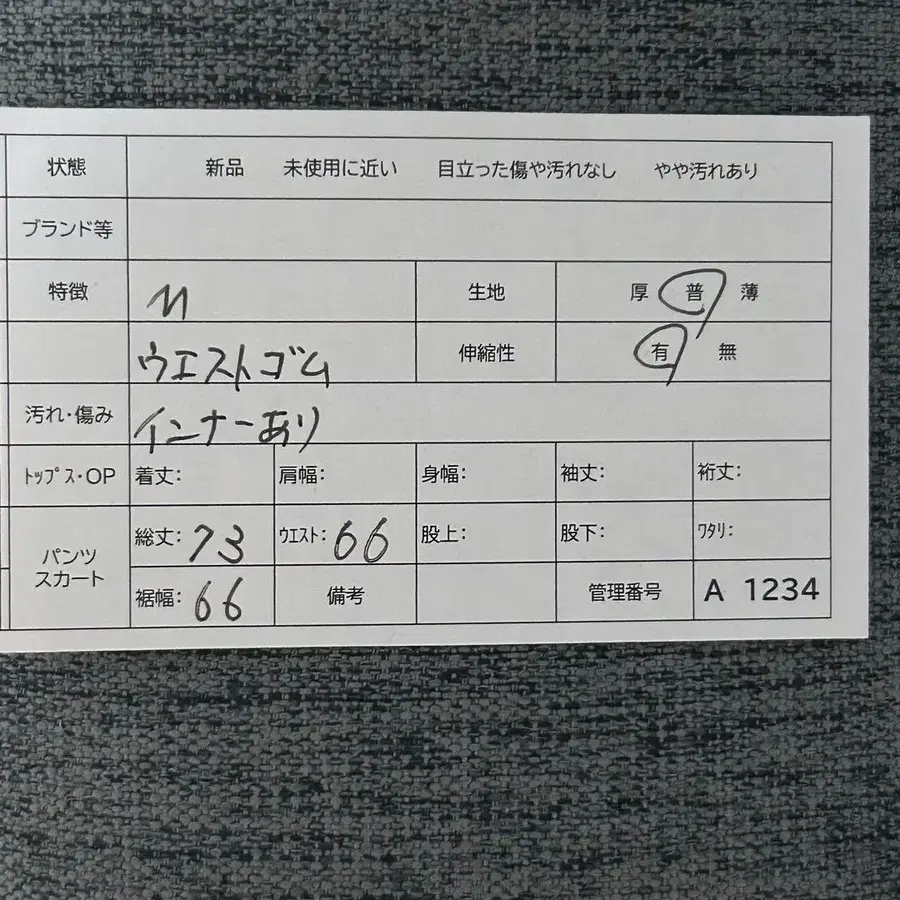 状態 新品 未使用に近い 目立った傷や汚れなし やや汚れあり
ブランド等
特徴 M 生地 厚 普 薄
ウエストゴム 伸縮性 有 無
汚れ・傷み インナーあり
トップス・OP 着丈: 肩幅: 身幅: 袖丈: 裄丈:
パンツ スカート 総丈: 73 ウエスト: 66 股上: 股下: ワタリ:
裾幅: 66 備考 管理番号 A 1234